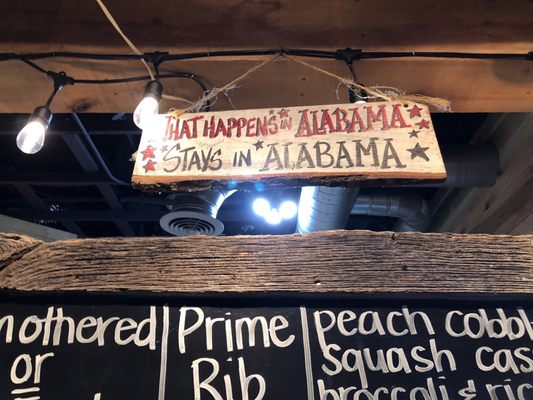 WHAT HAPPENS IN ALABAMA
STAYS IN ALABAMA
mothered
or
Prime
Rib
peach cobbl
Squash cass
broccoli & ric